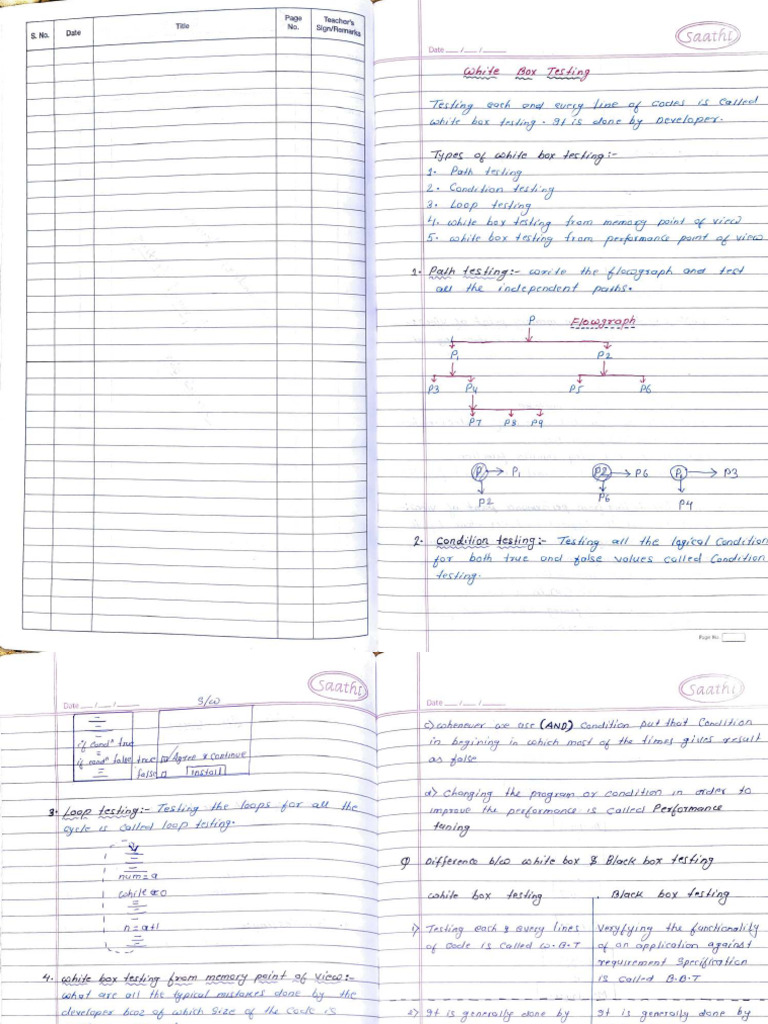 S. No.
Date
Title
Page No.
Teacher's Sign/Remarks
Saathi
Date __/__/__
White Box Testing
Testing each and every line of codes is called
white box testing. It is done by Developer.
Types of white box testing:-
1. Path testing
2. Condition testing
3. Loop testing
4. white box testing from memory point of view
5. white box testing from performance point of view
1. Path testing:- write the flowgraph and test
all the independent paths.
P Flowgraph
P1 P2
P3 P4 P5 P6
P7 P8 P9
P P1 P2 P6 P1 P3
P2 P6 P4
2. Condition testing:- Testing all the logical Condition
for both true and false values called Condition
testing.
Page No.
Saathi
Date __/__/__
S/W
if condn true
if condn false true Agree & continue
false Install
3. Loop testing:- Testing the loops for all the
cycle is called loop testing.
num=a
n=a+1
4. White box testing from memory point of view:-
what are all the typical mistakes done by the
developer bcoz of which size of the code is
Saathi
Date __/__/__
c) whenever we use (AND) Condition put that Condition
in begining in which most of the times gives result
as false
d) Changing the program or condition in order to
improve the performance is called Performance
tuning
Q Difference b/w white box & Black box testing
white box testing . Black box testing
1) Testing each & every lines Veryfying the functionality
of code is called W.B.T of an application against
requirement specification
is called B.B.T
2) It is generally done by It is generally done by